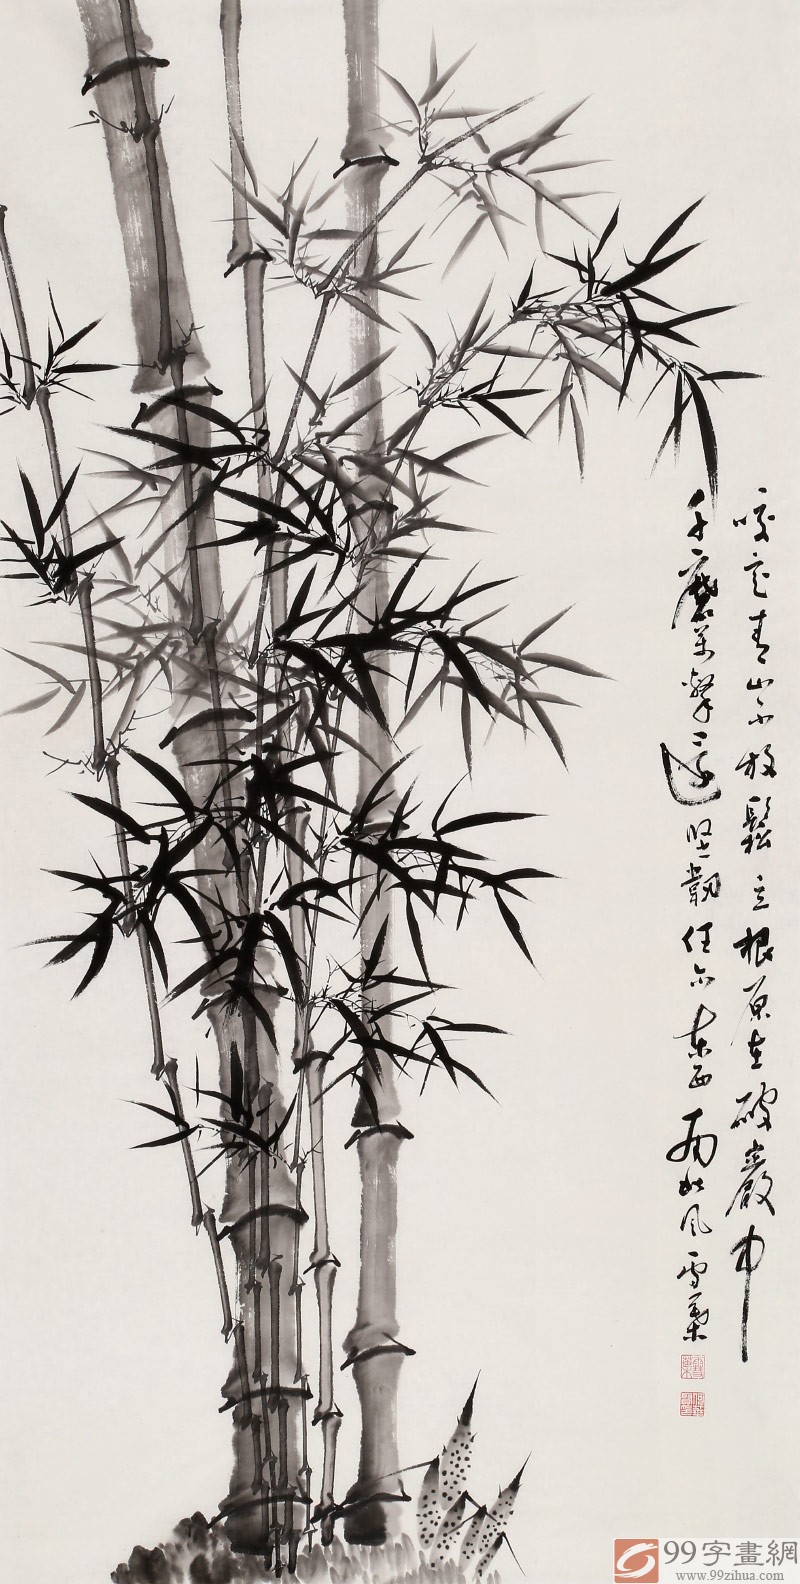 咬定青山不放鬆立根原在破巖中
千磨萬擊還坚韌任尔东西南北风雪葉
99字畫網
www.99zihua.com